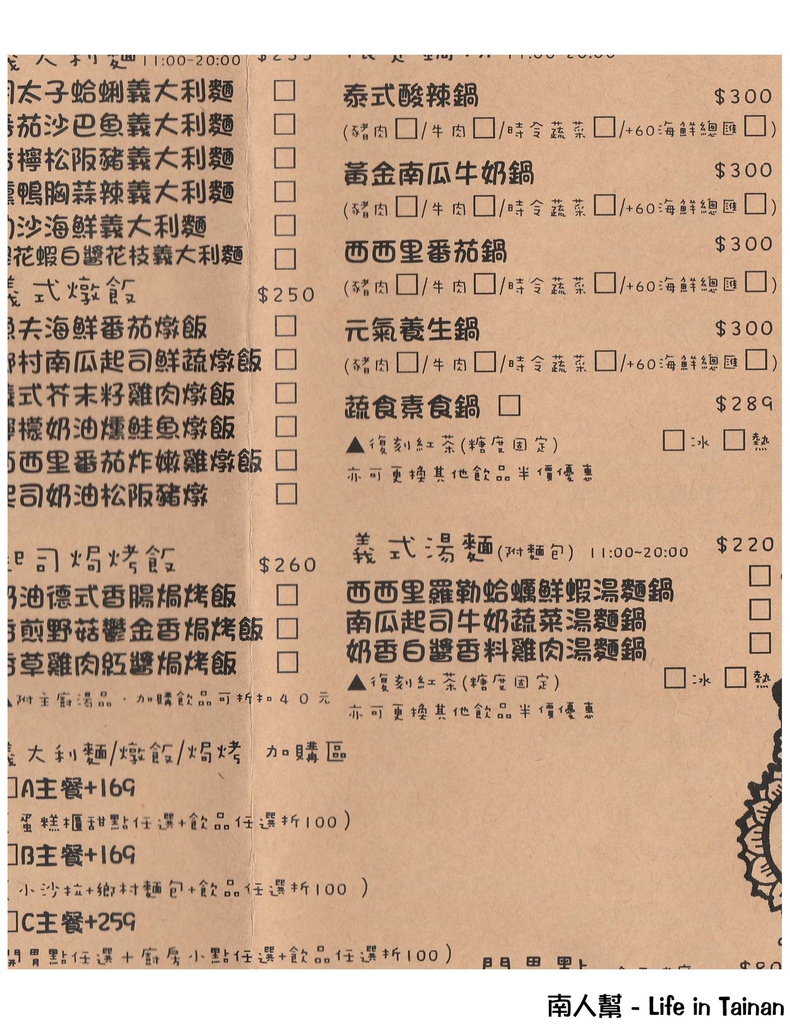 大利麵 11:00~20:00
太子蛤蜊義大利麵 □
茄沙巴魚義大利麵 □
檸松阪豬義大利麵 □
鴨胸蒜辣義大利麵 □
沙海鮮義大利麵 □
花蝦白醬花枝義大利麵 □
義式燉飯 $250
夫海鮮番茄燉飯 □
村南瓜起司鮮蔬燉飯 □
式芥末籽雞肉燉飯 □
檬奶油燻鮭魚燉飯 □
西里番茄炸嫩雞燉飯 □
起司奶油松阪豬燉 □
起司焗烤飯 $260
奶油德式香腸焗烤飯 □
煎野菇鬱金香焗烤飯 □
草雞肉紅醬焗烤飯 □
▲附主廚湯品，加購飲品可折扣40元
義大利麵/燉飯/焗烤 加購區
□A主餐+169
(蛋糕櫃甜點任選+飲品任選折100)
□B主餐+169
(小沙拉+鄉村麵包+飲品任選折100)
□C主餐+259
開胃點任選+廚房小點任選+飲品任選折100)
泰式酸辣鍋 $300
(豬肉□/牛肉□/時令蔬菜□/+60海鮮總匯□)
黃金南瓜牛奶鍋 $300
(豬肉□/牛肉□/時令蔬菜□/+60海鮮總匯□)
西西里番茄鍋 $300
(豬肉□/牛肉□/時令蔬菜□/+60海鮮總匯□)
元氣養生鍋 $300
(豬肉□/牛肉□/時令蔬菜□/+60海鮮總匯□)
蔬食素食鍋 □ $289
▲復刻紅茶(糖度固定) □冰 □熱
亦可更換其他飲品半價優惠
義式湯麵(附麵包) 11:00~20:00 $220
西西里羅勒蛤蠣鮮蝦湯麵鍋 □
南瓜起司牛奶蔬菜湯麵鍋 □
奶香白醬香料雞肉湯麵鍋 □
▲復刻紅茶(糖度固定) □冰 □熱
亦可更換其他飲品半價優惠
開胃點
南人幫 - Life in Tainan